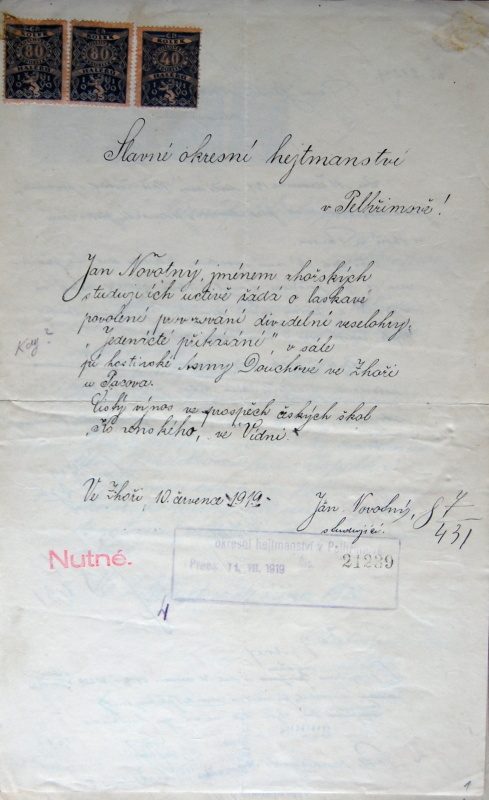 80 80 40
Slavné okresní hejtmanství
v Pelhřimově!
Jan Novotný, jménem zhořských
studujících uctivě žádá o laskavé
povolení provozování divadelní veselohry:
"Jedenácté přikázání", v sále
při hostinské Anny Douchové ve Zhoři
u Pacova.
Čistý výnos ve prospěch českých škol
"Komenského", ve Vídni.
Kdy?
Ve Zhoři, 10. července 1919.
Jan Novotný,
studující.
87
431
Nutné.
okresní hejtmanství v Pelhřimově
Praes. 11. VII. 1919 21239
4
1